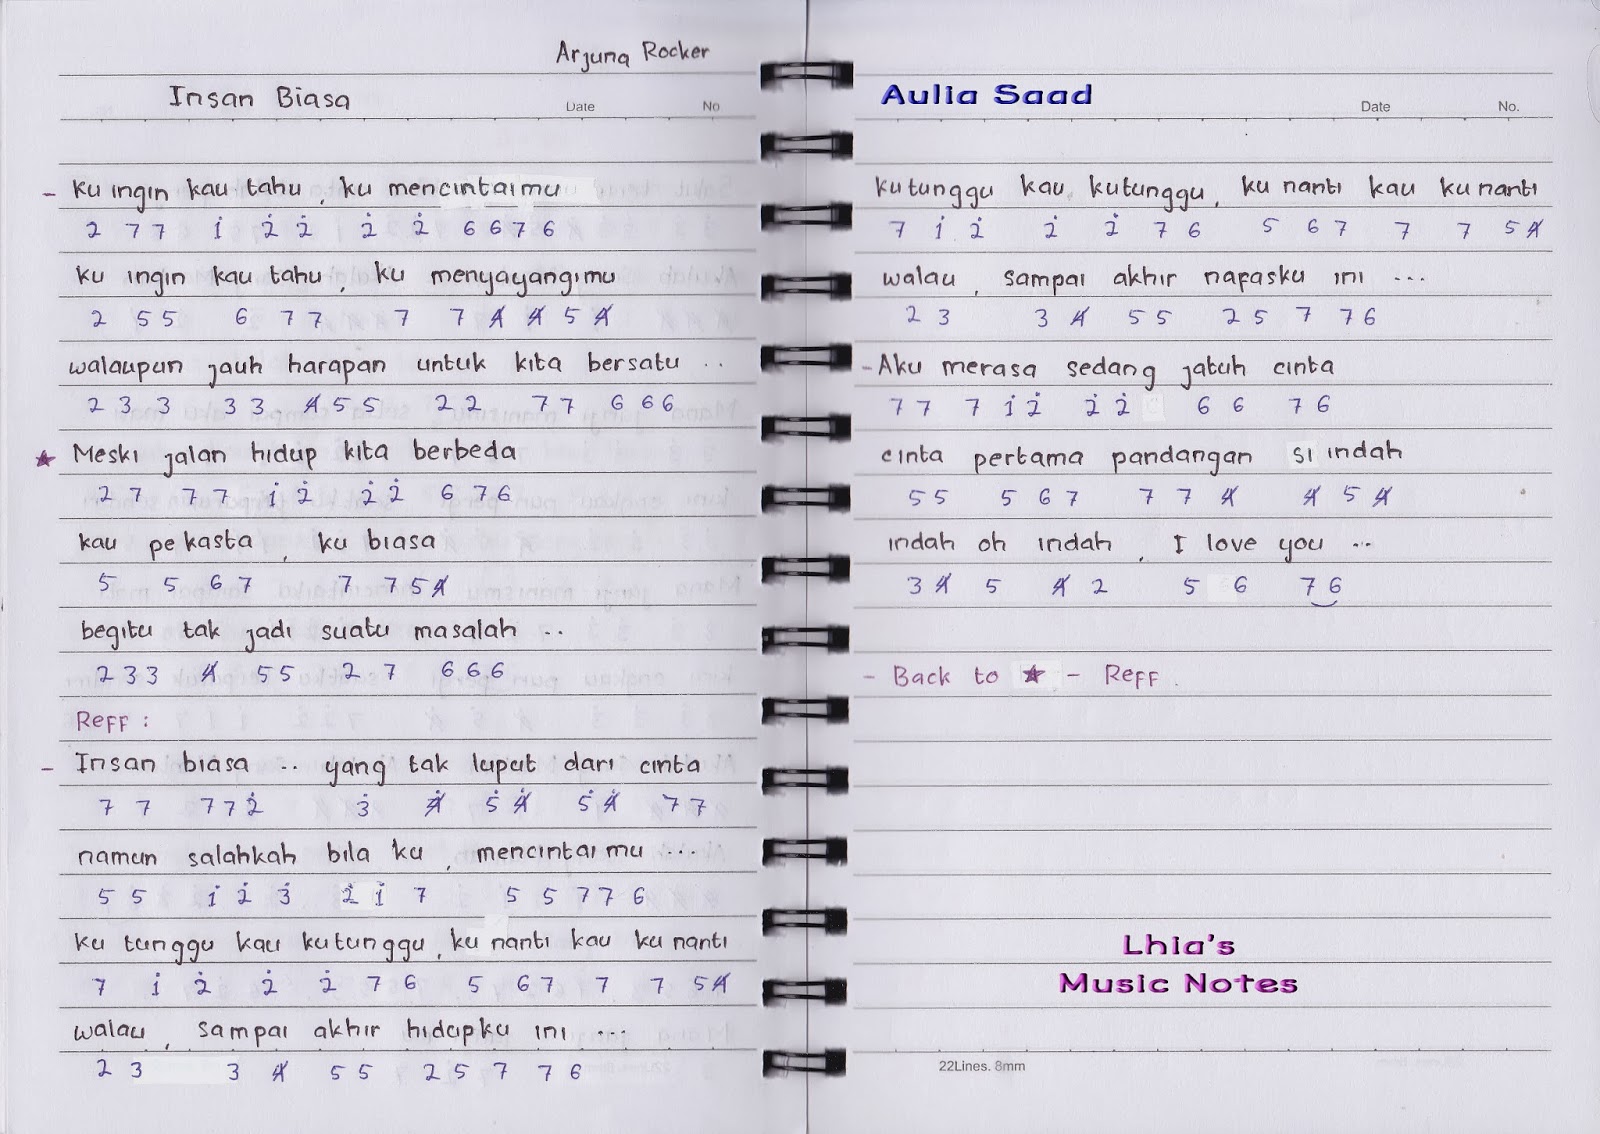 Arjuna Rocker
Insan Biasa
Date No
- ku ingin kau tahu, ku mencintaimu
2 7 7 1̇ 2̇ 2̇ 2̇ 2̇ 6 6 7 6
ku ingin kau tahu, ku menyayangimu
2 5 5 6 7 7 7 7 4̸ 4̸ 5 4̸
walaupun jauh harapan untuk kita bersatu ..
2 3 3 3 3 4̸ 5 5 2 2 7 7 6 6 6
★ Meski jalan hidup kita berbeda
2 7 7 7 1̇ 2̇ 2̇ 2̇ 6 7 6
kau pekasta, ku biasa
5 5 6 7 7 7 5 4̸
begitu tak jadi suatu masalah ..
2 3 3 4̸ 5 5 2 7 6 6 6
Reff :
- Insan biasa .. yang tak luput dari cinta
7 7 7 7 2̇ 3̇ 4̸̇ 5̇ 4̸̇ 5̇ 4̸̇ 7 7
namun salahkah bila ku, mencintaimu ...
5 5 1̇ 2̇ 3̇ 2̇ 1̇ 7 5 5 7 7 6
ku tunggu kau kutunggu, ku nanti kau ku nanti
7 1̇ 2̇ 2̇ 2̇ 7 6 5 6 7 7 7 5 4̸
walau, sampai akhir hidupku ini ...
2 3 3 4̸ 5 5 2 5 7 7 6
Aulia Saad
Date No.
kutunggu kau kutunggu, ku nanti kau ku nanti
7 1̇ 2̇ 2̇ 2̇ 7 6 5 6 7 7 7 5 4̸
walau, sampai akhir napasku ini ...
2 3 3 4̸ 5 5 2 5 7 7 6
- Aku merasa sedang jatuh cinta
7 7 7 1̇ 2̇ 2̇ 2̇ 6 6 7 6
cinta pertama pandangan si indah
5 5 5 6 7 7 7 4̸ 4̸ 5 4̸
indah oh indah, I love you ..
3 4̸ 5 4̸ 2 5 6 7 6
- Back to ★ - Reff.
Lhia's
Music Notes
22Lines. 8mm